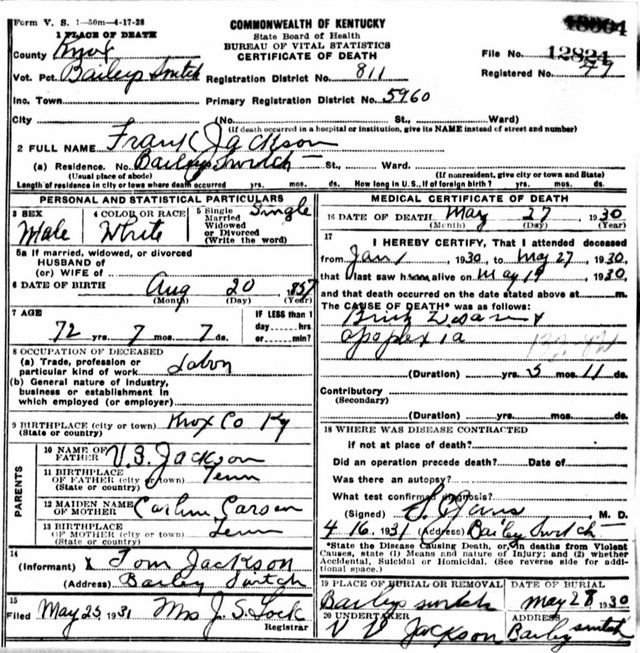 Form V. S. 1—50m—4-17-28
COMMONWEALTH OF KENTUCKY
State Board of Health
BUREAU OF VITAL STATISTICS
CERTIFICATE OF DEATH
1 PLACE OF DEATH
County Knox
Vot. Pct. Baileys Switch
Registration District No. 811
File No. 12824
Registered No. 79
Inc. Town
Primary Registration District No. 5960
City (No. St., Ward)
(If death occurred in a hospital or institution, give its NAME instead of street and number)
2 FULL NAME Frank Jackson
(a) Residence. No. Bailey Switch St., Ward.
(Usual place of abode) (If nonresident, give city or town and State)
Length of residence in city or town where death occurred yrs. mos. ds. How long in U.S., if of foreign birth? yrs. mos. ds.
PERSONAL AND STATISTICAL PARTICULARS
3 SEX Male
4 COLOR OR RACE White
5 Single Married Widowed or Divorced (Write the word) Single
5a If married, widowed, or divorced
HUSBAND of
(or) WIFE of
6 DATE OF BIRTH Aug 20, 857
(Month) (Day) (Year)
7 AGE 72 yrs. 7 mos. 7 ds.
IF LESS than 1 day hrs or min.?
8 OCCUPATION OF DECEASED
(a) Trade, profession or particular kind of work Labor
(b) General nature of industry, business or establishment in which employed (or employer)
9 BIRTHPLACE (city or town) Knox Co Ky
(State or country)
PARENTS
10 NAME OF FATHER Jackson
11 BIRTHPLACE OF FATHER (city or town) Tenn
(State or country)
12 MAIDEN NAME OF MOTHER
13 BIRTHPLACE OF MOTHER (city or town) Tenn
(State or country)
14
(Informant) X Tom Jackson
(Address) Bailey Switch
15
Filed May 25 1931 Mrs J. S. Lock
Registrar
MEDICAL CERTIFICATE OF DEATH
16 DATE OF DEATH May 27, 1930
(Month) (Day) (Year)
17
I HEREBY CERTIFY, That I attended deceased
from Jan 1, 1930, to May 27, 1930,
that I last saw him alive on May 19, 1930,
and that death occurred on the date stated above at m.
The CAUSE OF DEATH* was as follows:
apoplexia
(Duration) yrs. 5 mos. 11 ds.
Contributory
(Secondary)
(Duration) yrs. mos. ds.
18 WHERE WAS DISEASE CONTRACTED
if not at place of death?
Did an operation precede death? Date of
Was there an autopsy?
What test confirmed diagnosis?
(Signed) M. D.
4 16, 1931 (Address) Bailey Switch
*State the Disease Causing Death, or, in deaths from Violent
Causes, state (1) Means and nature of Injury; and (2) Whether
Accidental, Suicidal or Homicidal. (See reverse side for addi-
tional space.)
19 PLACE OF BURIAL OR REMOVAL Baileys switch
DATE OF BURIAL May 28 1930
20 UNDERTAKER Jackson
ADDRESS Bailey switch